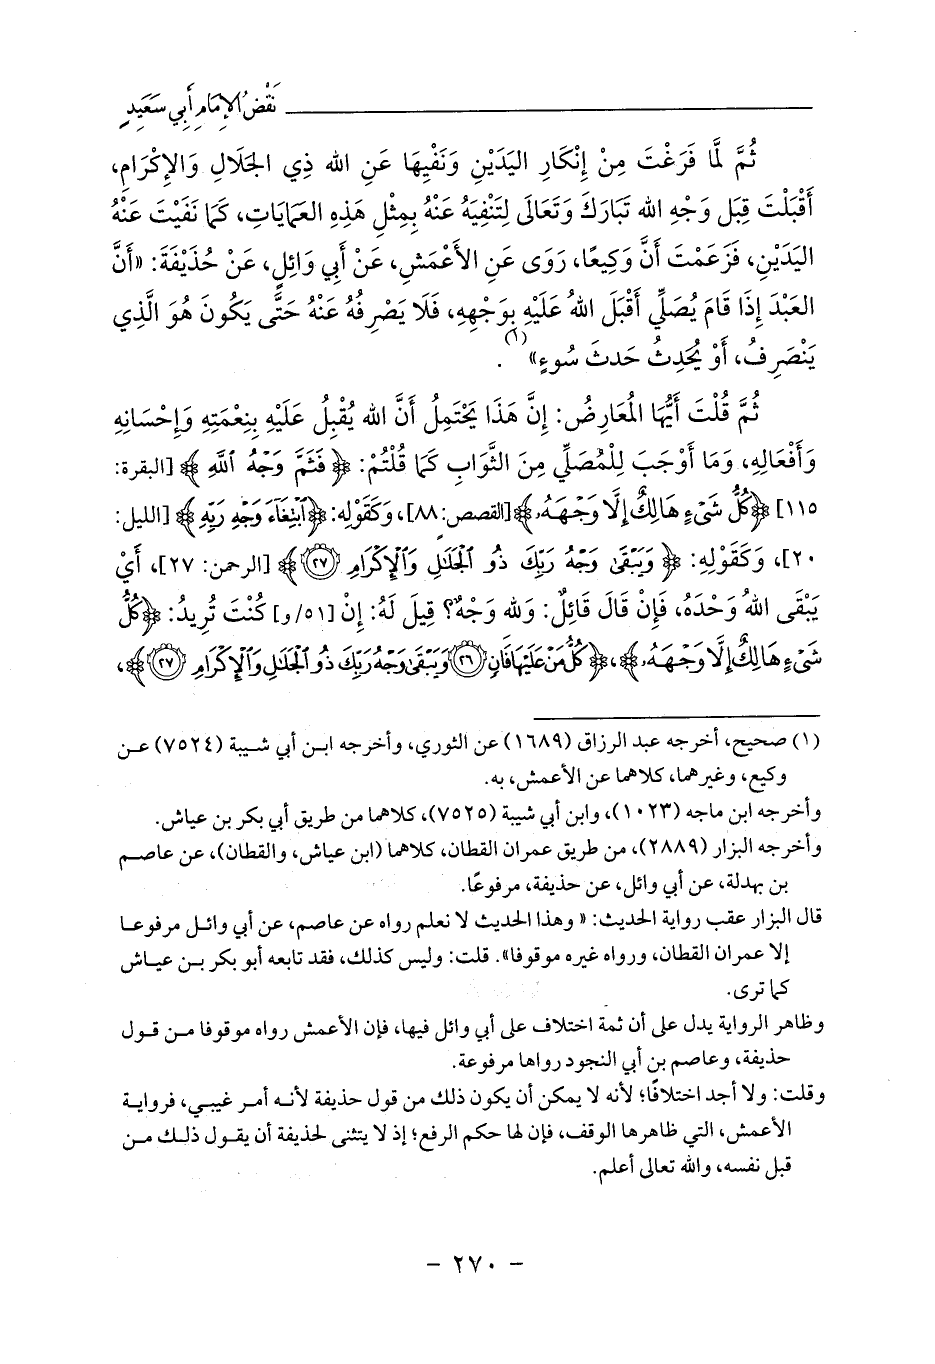 نَقْضُ الإِمَامِ أَبِي سَعِيدٍ
ثُمَّ لَمَّا فَرَغْتَ مِنْ إِنْكَارِ اليَدَيْنِ وَنَفْيِهَا عَنِ الله ذِي الجَلَالِ وَالإِكْرَامِ،
أَقْبَلْتَ قِبَل وَجْهِ الله تَبَارَكَ وَتَعَالَى لِتَنْفِيَهُ عَنْهُ بِمِثْلِ هَذِهِ العَمَايَاتِ، كَمَا نَفَيْتَ عَنْهُ
اليَدَيْنِ، فَزَعَمْتَ أَنَّ وَكِيعًا، رَوَى عَنِ الأَعْمَشِ، عَنْ أَبِي وَائِلٍ، عَنْ حُذَيْفَةَ: «أَنَّ
العَبْدَ إِذَا قَامَ يُصَلِّي أَقْبَلَ اللهُ عَلَيْهِ بِوَجْهِهِ، فَلَا يَصْرِفُهُ عَنْهُ حَتَّى يَكُونَ هُوَ الَّذِي
يَنْصَرِفُ، أَوْ يُحْدِثُ حَدثَ سُوءٍ»(١).
ثُمَّ قُلْتَ أَيُّهَا المُعَارِضُ: إِنَّ هَذَا يَحْتَمِلُ أَنَّ الله يُقْبِلُ عَلَيْهِ بِنِعْمَتِهِ وَإِحْسَانِهِ
وَأَفْعَالِهِ، وَمَا أَوْجَبَ لِلْمُصَلِّي مِنَ الثَّوَابِ كَمَا قُلْتُمْ: ﴿فَثَمَّ وَجْهُ ٱللَّهِ﴾ [البقرة:
١١٥] ﴿كُلُّ شَيْءٍ هَالِكٌ إِلَّا وَجْهَهُۥ﴾ [القصص: ٨٨]، وَكَقَوْلِهِ: ﴿ٱبْتِغَآءَ وَجْهِ رَبِّهِ﴾ [الليل:
٢٠]، وَكَقَوْلِهِ: ﴿وَيَبْقَىٰ وَجْهُ رَبِّكَ ذُو ٱلْجَلَٰلِ وَٱلْإِكْرَامِ ٢٧﴾ [الرحمن: ٢٧]، أَيْ
يَبْقَى اللهُ وَحْدَهُ، فَإِنْ قَالَ قَائِلٌ: وَلله وَجْهٌ؟ قِيلَ لَهُ: إِنْ [٥١/و] كُنْتَ تُرِيدُ: ﴿كُلُّ
شَيْءٍ هَالِكٌ إِلَّا وَجْهَهُۥ﴾، ﴿كُلُّ مَنْ عَلَيْهَا فَانٍ ٢٦ وَيَبْقَىٰ وَجْهُ رَبِّكَ ذُو ٱلْجَلَٰلِ وَٱلْإِكْرَامِ ٢٧﴾،
(١) صحيح، أخرجه عبد الرزاق (١٦٨٩) عن الثوري، وأخرجه ابن أبي شيبة (٧٥٢٤) عن
وكيع، وغيرهما، كلاهما عن الأعمش، به.
وأخرجه ابن ماجه (١٠٢٣)، وابن أبي شيبة (٧٥٢٥)، كلاهما من طريق أبي بكر بن عياش.
وأخرجه البزار (٢٨٨٩)، من طريق عمران القطان، كلاهما (ابن عياش، والقطان)، عن عاصم
بن بهدلة، عن أبي وائل، عن حذيفة، مرفوعًا.
قال البزار عقب رواية الحديث: « وهذا الحديث لا نعلم رواه عن عاصم، عن أبي وائل مرفوعا
إلا عمران القطان، ورواه غيره موقوفا». قلت: وليس كذلك، فقد تابعه أبو بكر بن عياش
كما ترى.
وظاهر الرواية يدل على أن ثمة اختلاف على أبي وائل فيها، فإن الأعمش رواه موقوفا من قول
حذيفة، وعاصم بن أبي النجود رواها مرفوعة.
وقلت: ولا أجد اختلافًا؛ لأنه لا يمكن أن يكون ذلك من قول حذيفة لأنه أمر غيبي، فرواية
الأعمش، التي ظاهرها الوقف، فإن لها حكم الرفع؛ إذ لا يتثنى لحذيفة أن يقول ذلك من
قبل نفسه، والله تعالى أعلم.
- ٢٧٠ -